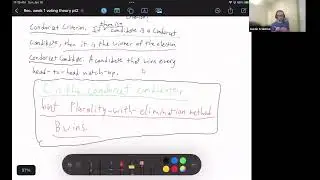 Rec. week 1 voting theory pt2
Condorcet Criterion: If candidate is a Condorcet
Candidate, then it is the winner of the election
Condorcet Candidate: A candidate that wins every
head-to-head match-up.
C is the condorcet candidate
but Plurality-with-elimination method
B wins.
57%